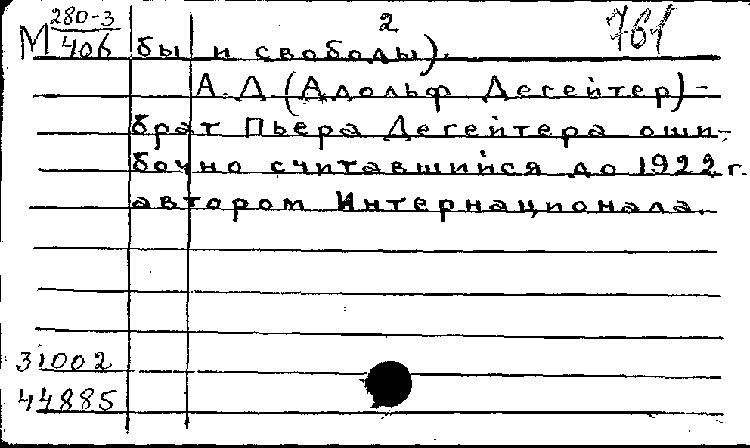 2
761
М 280-3
406
бы и свободы).
А. Д (Адольф Дегейтер) -
брат Пьера Дегейтера оши-
бочно считавшийся до 1922 г.
автором Интернационала.
31002
44885